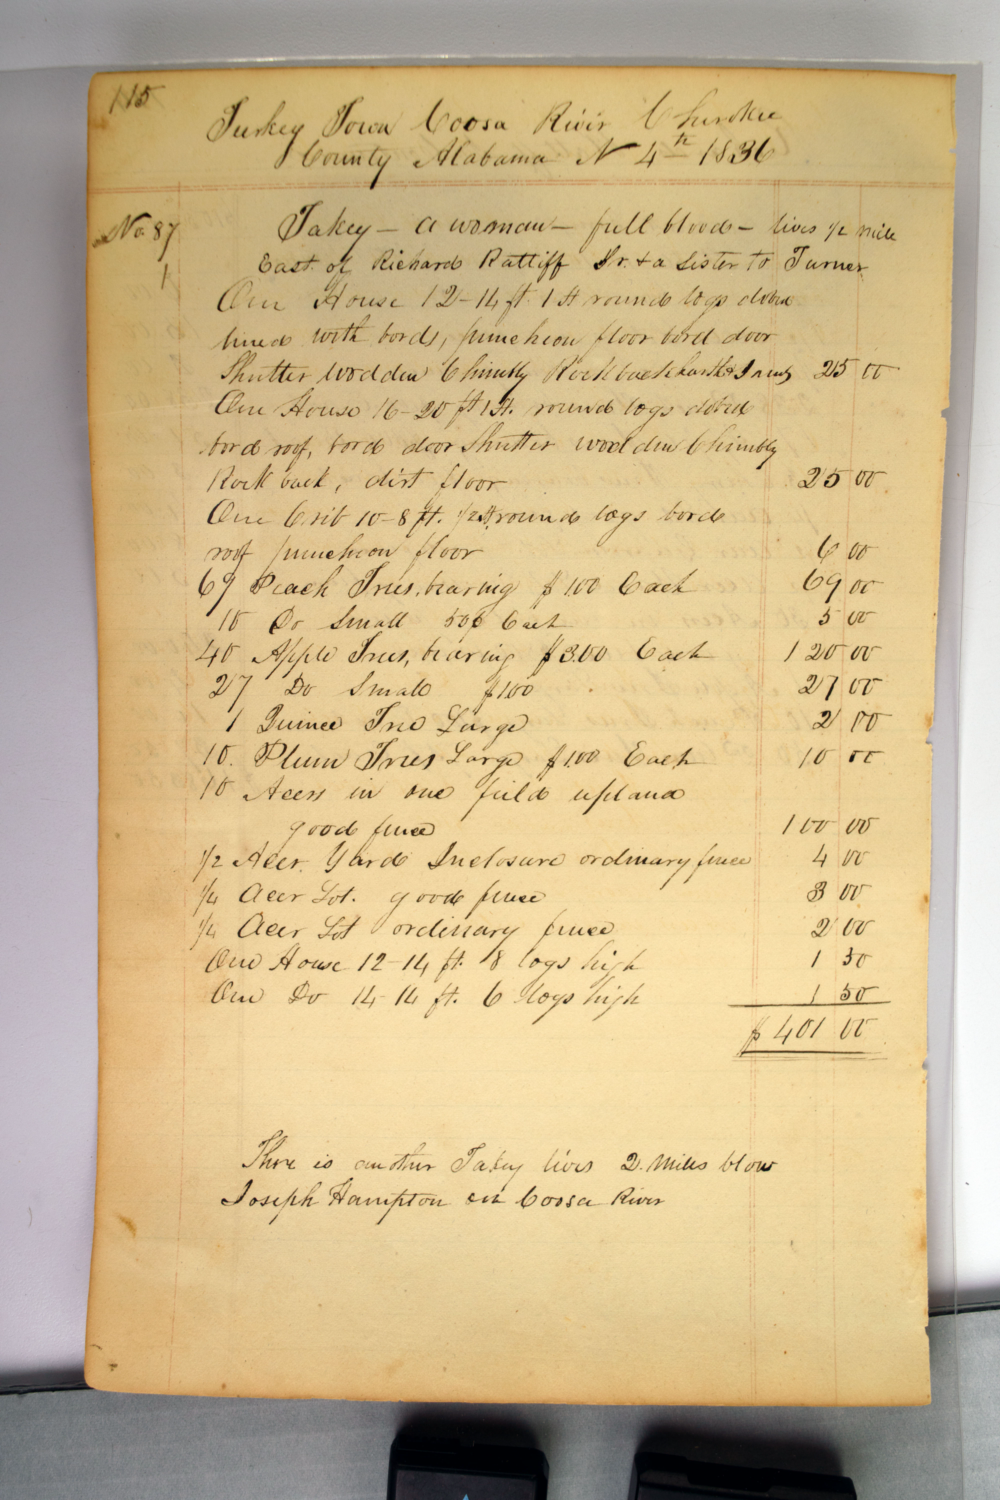 115
Turkey Town Coosa River Cherokee
County Alabama N 4th 1836
No. 87 Takey – a woman – full blood – lives 1/2 mile
1 East of Richard Ratliff Sr. & a sister to Turner
One House 12–14 ft. 1 St round logs dobed
lined with bords, puncheon floor bord door
Shutter wodden Chimbly Rock back hearth & Jambs 25 00
One House 16–20 ft 1 St. round logs dobed
bord roof, bord door Shutter wodden Chimbly
Rock back, dirt floor 25 00
One Crib 10–8 ft. 1/2 St. round logs bord
roof puncheon floor 6 00
69 Peach Trees, bearing $1.00 Each 69 00
10 Do Small 50¢ Each 5 00
40 Apple Trees, bearing $3.00 Each 120 00
27 Do Small $1.00 27 00
1 Quince Tree Large 2 00
10. Plum Trees Large $1.00 Each 10 00
10 Acers in one field upland
good fence 100 00
1/2 Acer. Yard Inclosure ordinary fence 4 00
1/4 Acer Lot. good fence 3 00
1/4 Acer Lot ordinary fence 2 00
One House 12–14 ft. 8 logs high 1 50
One Do 14–14 ft. 6 logs high 1 50
$ 401 00
Thre is another Takey lives 2. Miles blow
Joseph Hampton on Coosa River